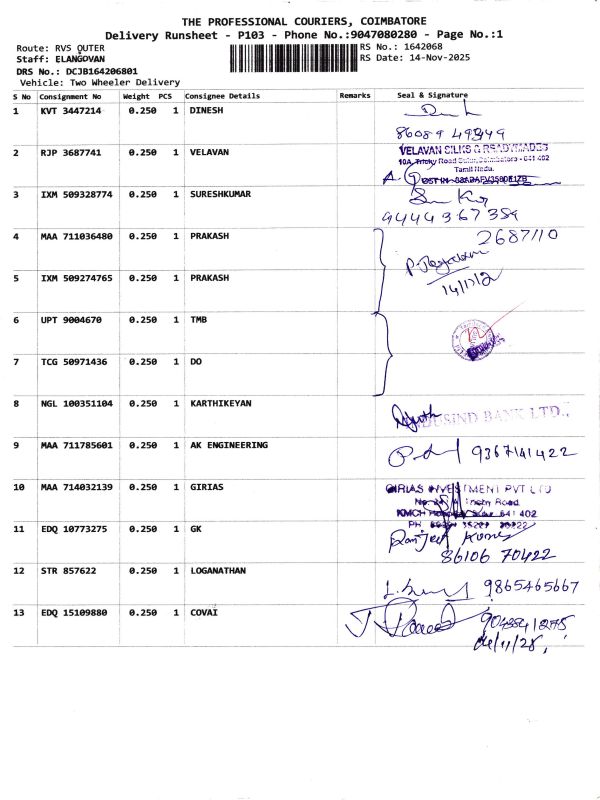 THE PROFESSIONAL COURIERS, COIMBATORE
Delivery Runsheet - P103 - Phone No.:9047080280 - Page No.:1
Route: RVS OUTER
RS No.: 1642068
Staff: ELANGOVAN
RS Date: 14-Nov-2025
DRS No.: DCJB164206801
Vehicle: Two Wheeler Delivery
S No Consignment No Weight PCS Consignee Details Remarks Seal & Signature
1 KVT 3447214 0.250 1 DINESH
2 RJP 3687741 0.250 1 VELAVAN
VELAVAN SILKS & READYMADES
10A, Trichy Road Sulur, Coimbatore - 641 402
Tamil Nadu.
3 IXM 509328774 0.250 1 SURESHKUMAR
9444367359
4 MAA 711036480 0.250 1 PRAKASH
2687110
5 IXM 509274765 0.250 1 PRAKASH
6 UPT 9004670 0.250 1 TMB
7 TCG 50971436 0.250 1 DO
8 NGL 100351104 0.250 1 KARTHIKEYAN
INDUSIND BANK LTD.,
9 MAA 711785601 0.250 1 AK ENGINEERING
9367141422
10 MAA 714032139 0.250 1 GIRIAS
GIRIAS INVESTMENT PVT LTD
Trichy Road
641 402
11 EDQ 10773275 0.250 1 GK
Ranjeet Kumar
86106 70422
12 STR 857622 0.250 1 LOGANATHAN
9865465667
13 EDQ 15109880 0.250 1 COVAI